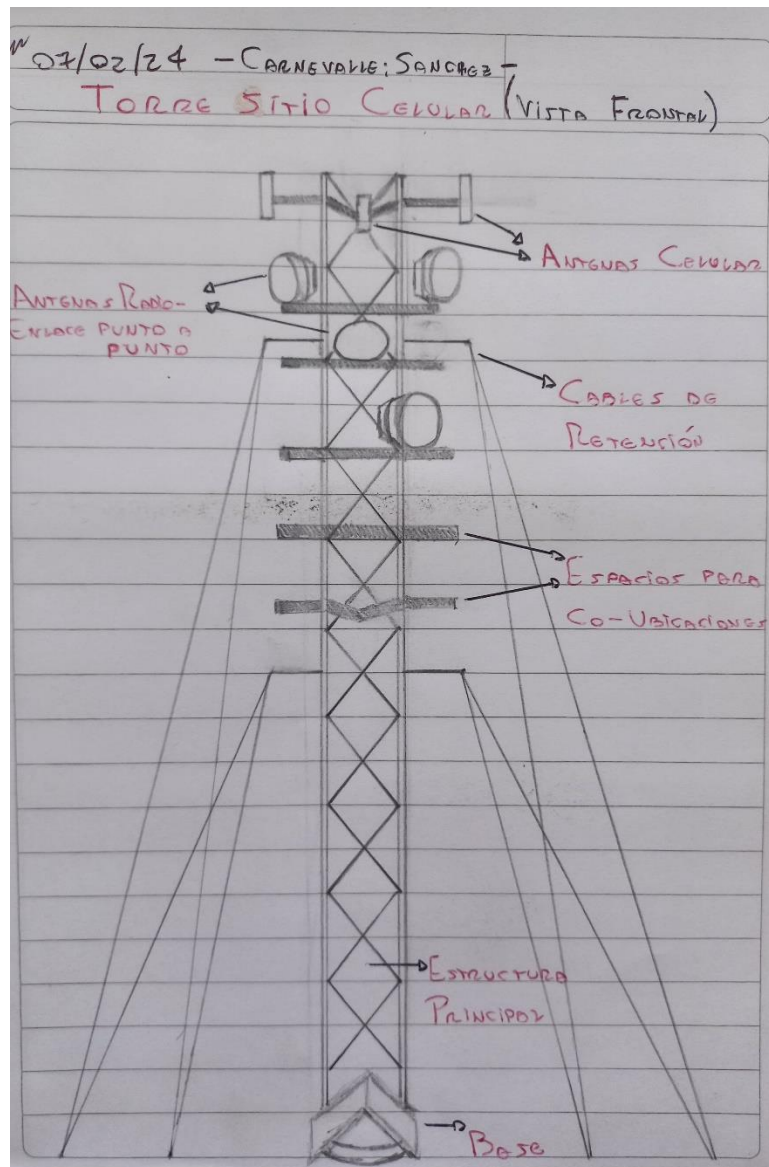 07/02/24 - CARNEVALLE; SANCHEZ -
TORRE SITIO CELULAR (VISTA FRONTAL)
ANTENAS CELULAR
ANTENAS RADIO-
ENLACE PUNTO A
PUNTO
CABLES DE
RETENCIÓN
ESPACIOS PARA
CO-UBICACIONES
ESTRUCTURA
PRINCIPAL
BASE